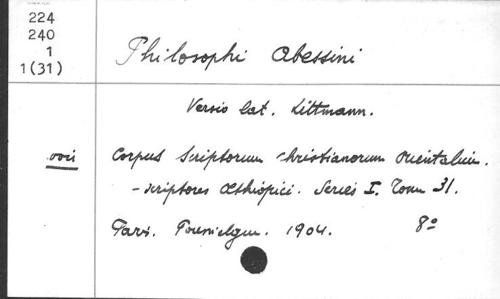 224
240
1
1(31)
Philosophi Abessini
Versio lat. Littmann.
Corpus scriptorum christianorum orientalium.
- scriptores Aethiopici. Series I. Tom 31.
Pari. 1904. 8°